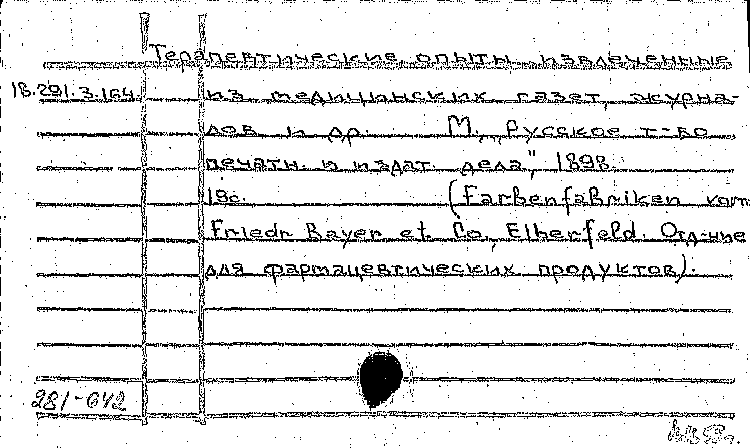 Терапевтические опыты извлеченные
18.291.3.164. из медицинских газет, журна-
лов и др. М, Русское т-во
печатн. и издат. дела", 1898.
18с. (Farbenfabriken vorm
Friedr Bayer et Co, Elberfeld. Отд-ние
для фармацевтических продуктов).
281-642